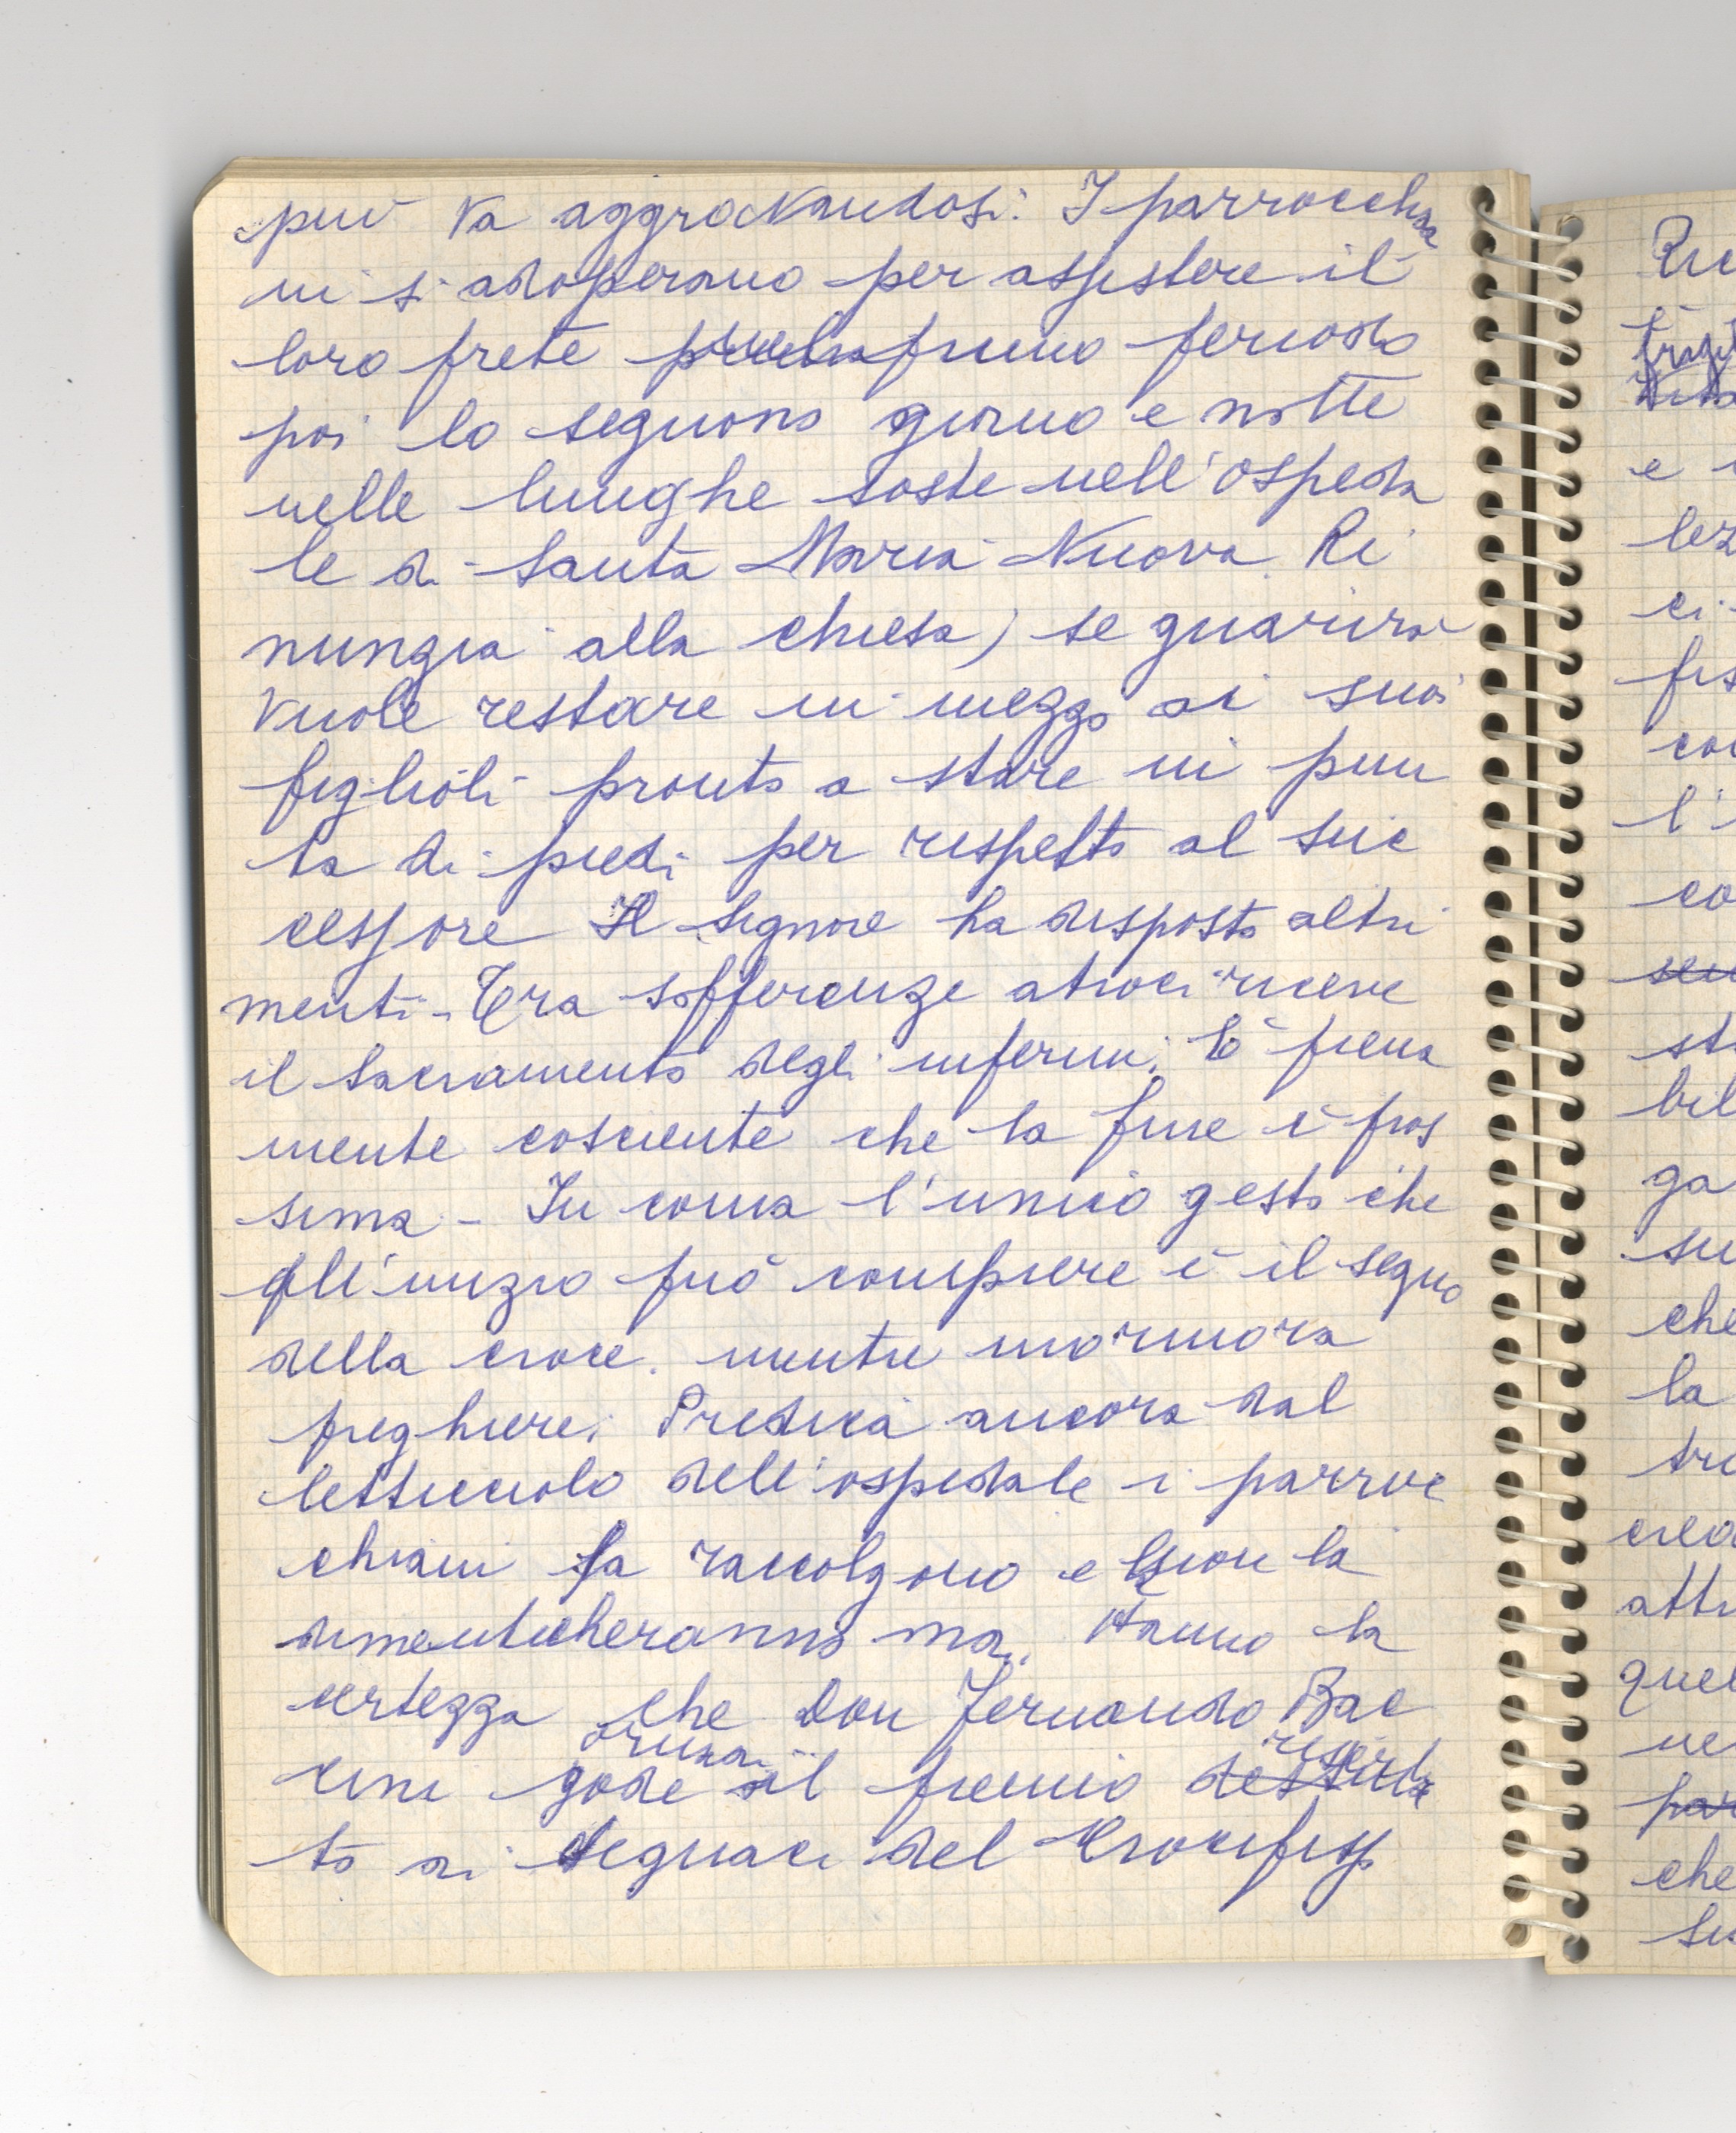 più va aggravandosi. I parrocchia
ni si adoperano per assistere il
loro prete primo periodo
poi lo seguono giorno e notte
nelle lunghe soste nell'ospeda
le di Santa Maria Nuova. Ri
nunzia alla chiesa, se guarirà
vuole restare in mezzo ai suoi
figlioli pronto a stare in pun
ta di piedi per rispetto al suc
cessore Il Signore ha disposto altri
menti - Tra sofferenze atroci riceve
il sacramento degli infermi. È piena
mente cosciente che la fine è pros
sima - In coma l'unico gesto che
all'inizio può compiere è il segno
della croce. mentre mormora
preghiere. Predica ancora dal
lettucciolo dell'ospedale i parroc
chiani la raccolgono e non la
dimenticheranno mai. Hanno la
certezza che Don Fernando Bac
cini gode ormai il premio riserva
to ai seguaci del Crocifisso
Ric
e
lez
ci
fis
co
l'
co
st
bil
ga
su
che
la
tr
crea
attr
quel
ne
par
che
su